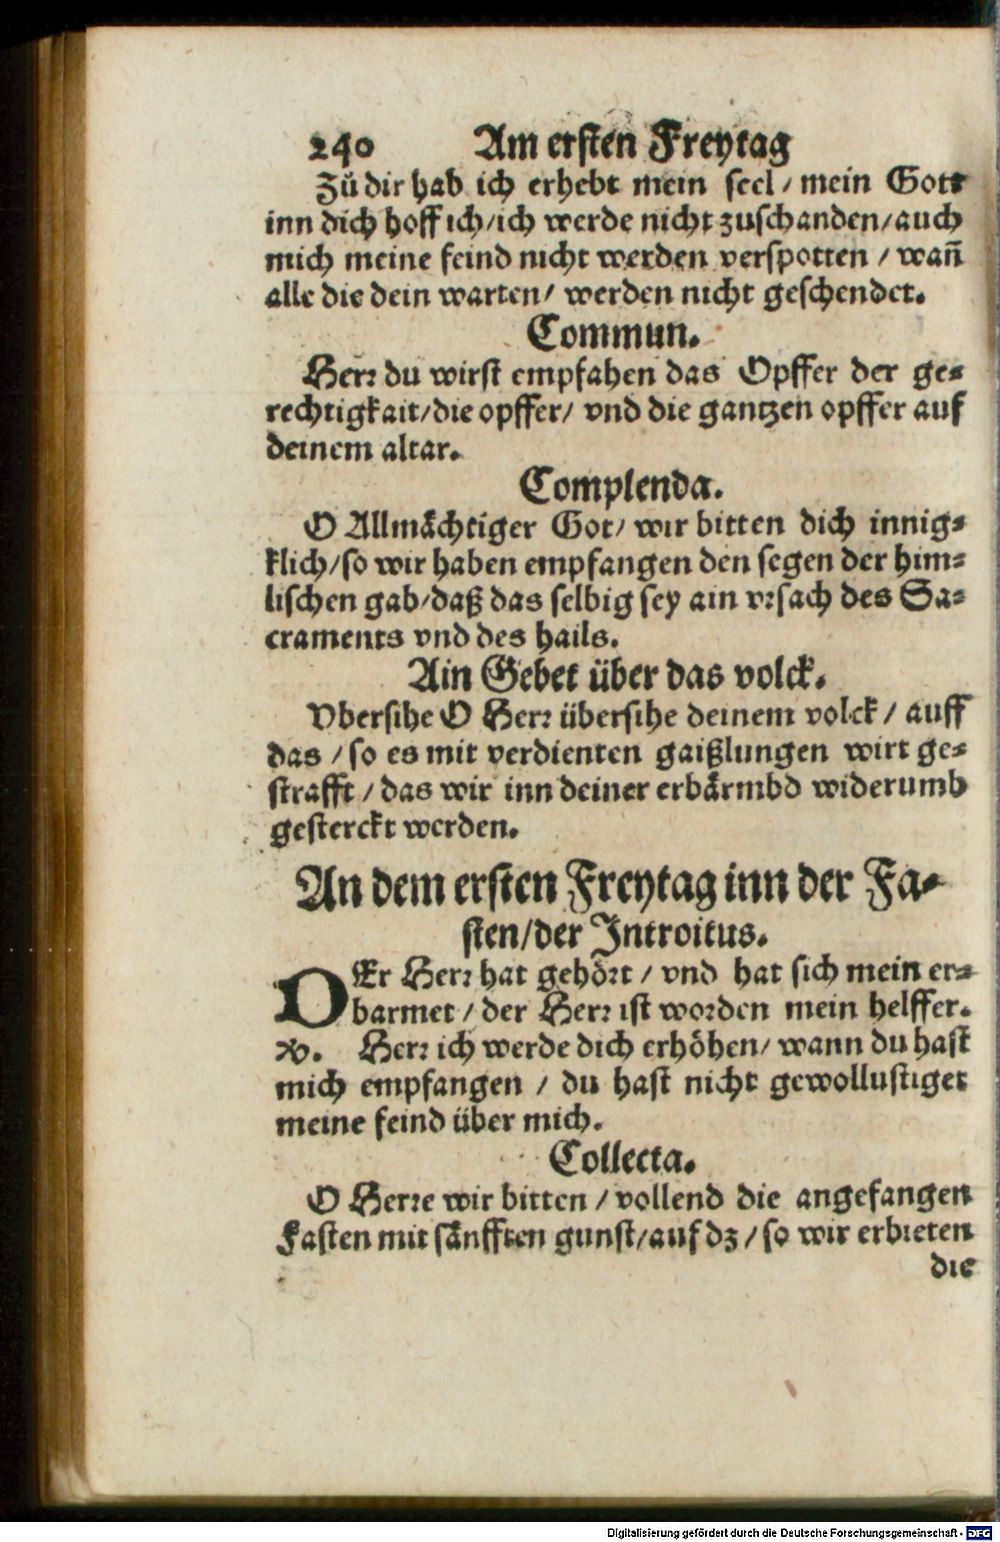 240 Am ersten Freytag
Zů dir hab ich erhebt mein seel / mein Gott
inn dich hoff ich / ich werde nicht zuschanden / auch
mich meine feind nicht werden verspotten / wañ
alle die dein warten / werden nicht geschendet.
Commun.
Herr du wirst empfahen das Opffer der ge-
rechtigkait / die opffer / vnd die gantzen opffer auf
deinem altar.
Complenda.
O Allmächtiger Got / wir bitten dich innig-
klich / so wir haben empfangen den segen der him-
lischen gab / daß das selbig sey ain vrsach des Sa-
craments vnd des hails.
Ain Gebet über das volck.
Vbersihe O Herr übersihe deinem volck / auff
das / so es mit verdienten gaißlungen wirt ge-
strafft / das wir inn deiner erbärmbd widerumb
gesterckt werden.
An dem ersten Freytag inn der Fa-
sten / der Introitus.
DEr Herr hat gehört / vnd hat sich mein er-
barmet / der Herr ist worden mein helffer.
V. Herr ich werde dich erhöhen / wann du hast
mich empfangen / du hast nicht gewollustiget
meine feind über mich.
Collecta.
O Herre wir bitten / vollend die angefangen
Fasten mit sänfften gunst / auf dz / so wir erbieten
die
Digitalisierung gefördert durch die Deutsche Forschungsgemeinschaft - DFG